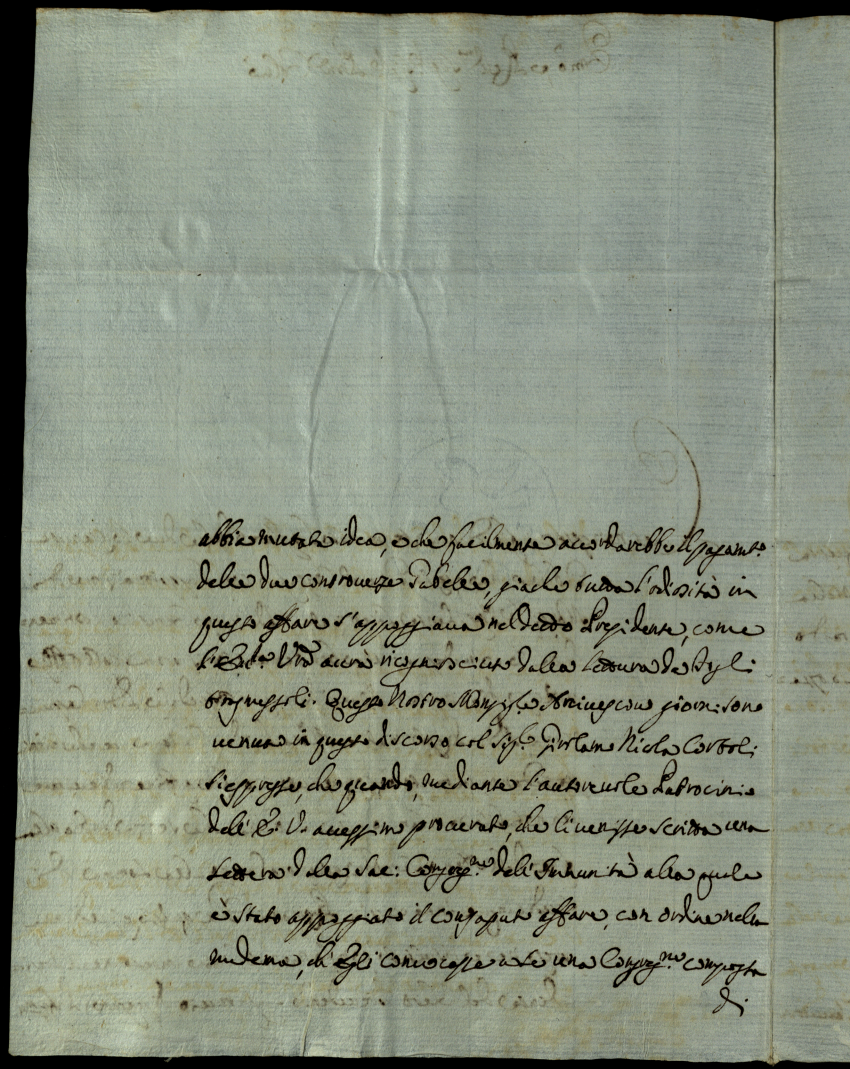 abbia mutata idea, e che facilmente accordarebbe il pagamto
delle due controverse Gabelle, giache tutta l'odiosità in
questo affare s'appoggiava nel detto Presidente, come
l'Eza Vra avrà riconosciuto dalla lettura de Fogli
trasmessoli. Questo Nostro Monsigre Arcivescovo giorni sono
venuto in questo discorso col Sigr Girolamo Nicola
si espresse, che quando, mediante l'autorevole Patrocinio
dell'E. V. avessimo procurato, che li venisse scritta una
Lettera dalla Sac: Congregne dell'Immunità alla quale
è stato appoggiato il consaputo affare, con ordine nella
medema, ch'Egli convocasse a se una Congregne composta
di